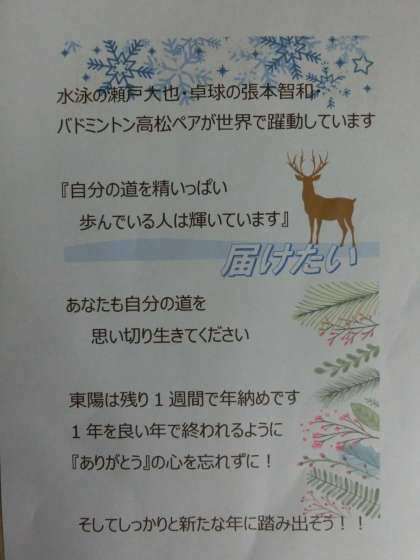 水泳の瀬戸大也・卓球の張本智和・
バドミントン高松ペアが世界で躍動しています
『自分の道を精いっぱい
歩んでいる人は輝いています』
届けたい
あなたも自分の道を
思い切り生きてください
東陽は残り1週間で年納めです
1年を良い年で終われるように
『ありがとう』の心を忘れずに！
そしてしっかりと新たな年に踏み出そう！！